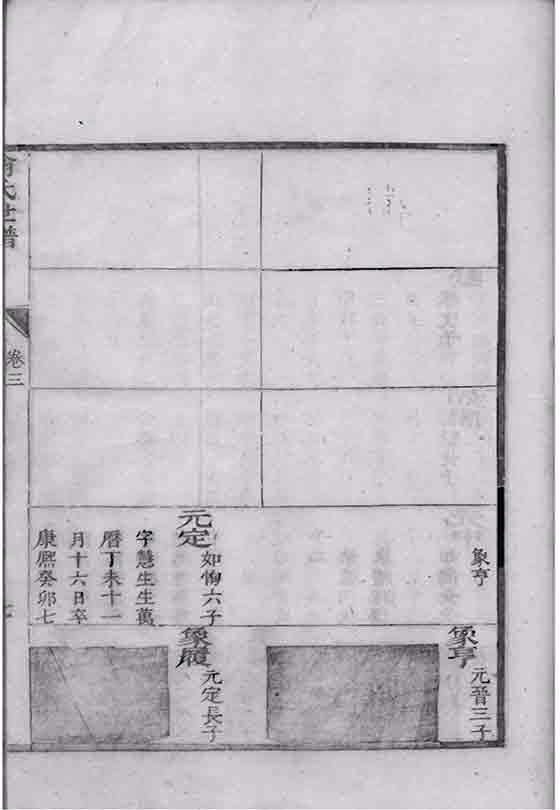 象亨
元定
如恂六子
字慧生生萬
曆丁未十一
月十六日卒
康熙癸卯七
象亨
元晉三子
象履
元定長子
氏世譜
卷三